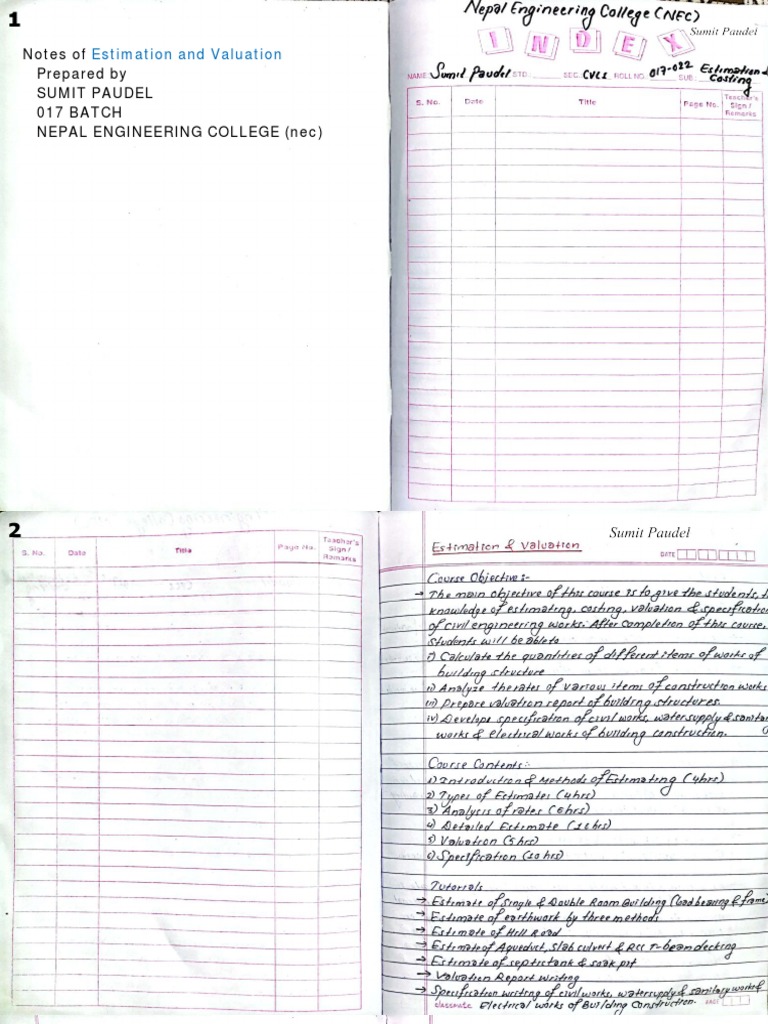 1
Notes of Estimation and Valuation
Prepared by
SUMIT PAUDEL
017 BATCH
NEPAL ENGINEERING COLLEGE (nec)
Nepal Engineering College (NEC)
Sumit Paudel
INDEX
NAME: Sumit Paudel STD.: SEC. CVLS ROLL NO. 017-022 SUB.: Estimation &
Costing
S. No. Date Title Page No. Teacher's Sign / Remarks
2
S. No. Date Title Page No. Teacher's Sign / Remarks
Sumit Paudel
Estimation & Valuation
DATE
Course Objective:-
→ The main objective of this course is to give the students, t
knowledge of estimating, costing, valuation & specificatio
of civil engineering works. After completion of this course,
students will be able to
i) Calculate the quantities of different items of works of
building structure
ii) Analyze the rates of various items of construction works
iii) Prepare valuation report of building structures.
iv) Develop specification of civil works, water supply & sanitar
works & electrical works of building construction.
Course Contents:-
1) Introduction & Methods of Estimating (4hrs)
2) Types of Estimates (4hrs)
3) Analysis of rates (6hrs)
4) Detailed Estimate (16hrs)
5) Valuation (5hrs)
6) Specification (10hrs)
Tutorials
→ Estimate of Single & Double Room Building (load bearing & frame
→ Estimate of earthwork by three methods
→ Estimate of Hill Road
→ Estimate of Aqueduct, Slab culvert & RCC T-beam decking
→ Estimate of septic tank & soak pit
→ Valuation Report Writing
→ Specification writing of civil works, water supply & sanitary works &
classmate Electrical works of Building Construction. PAGE